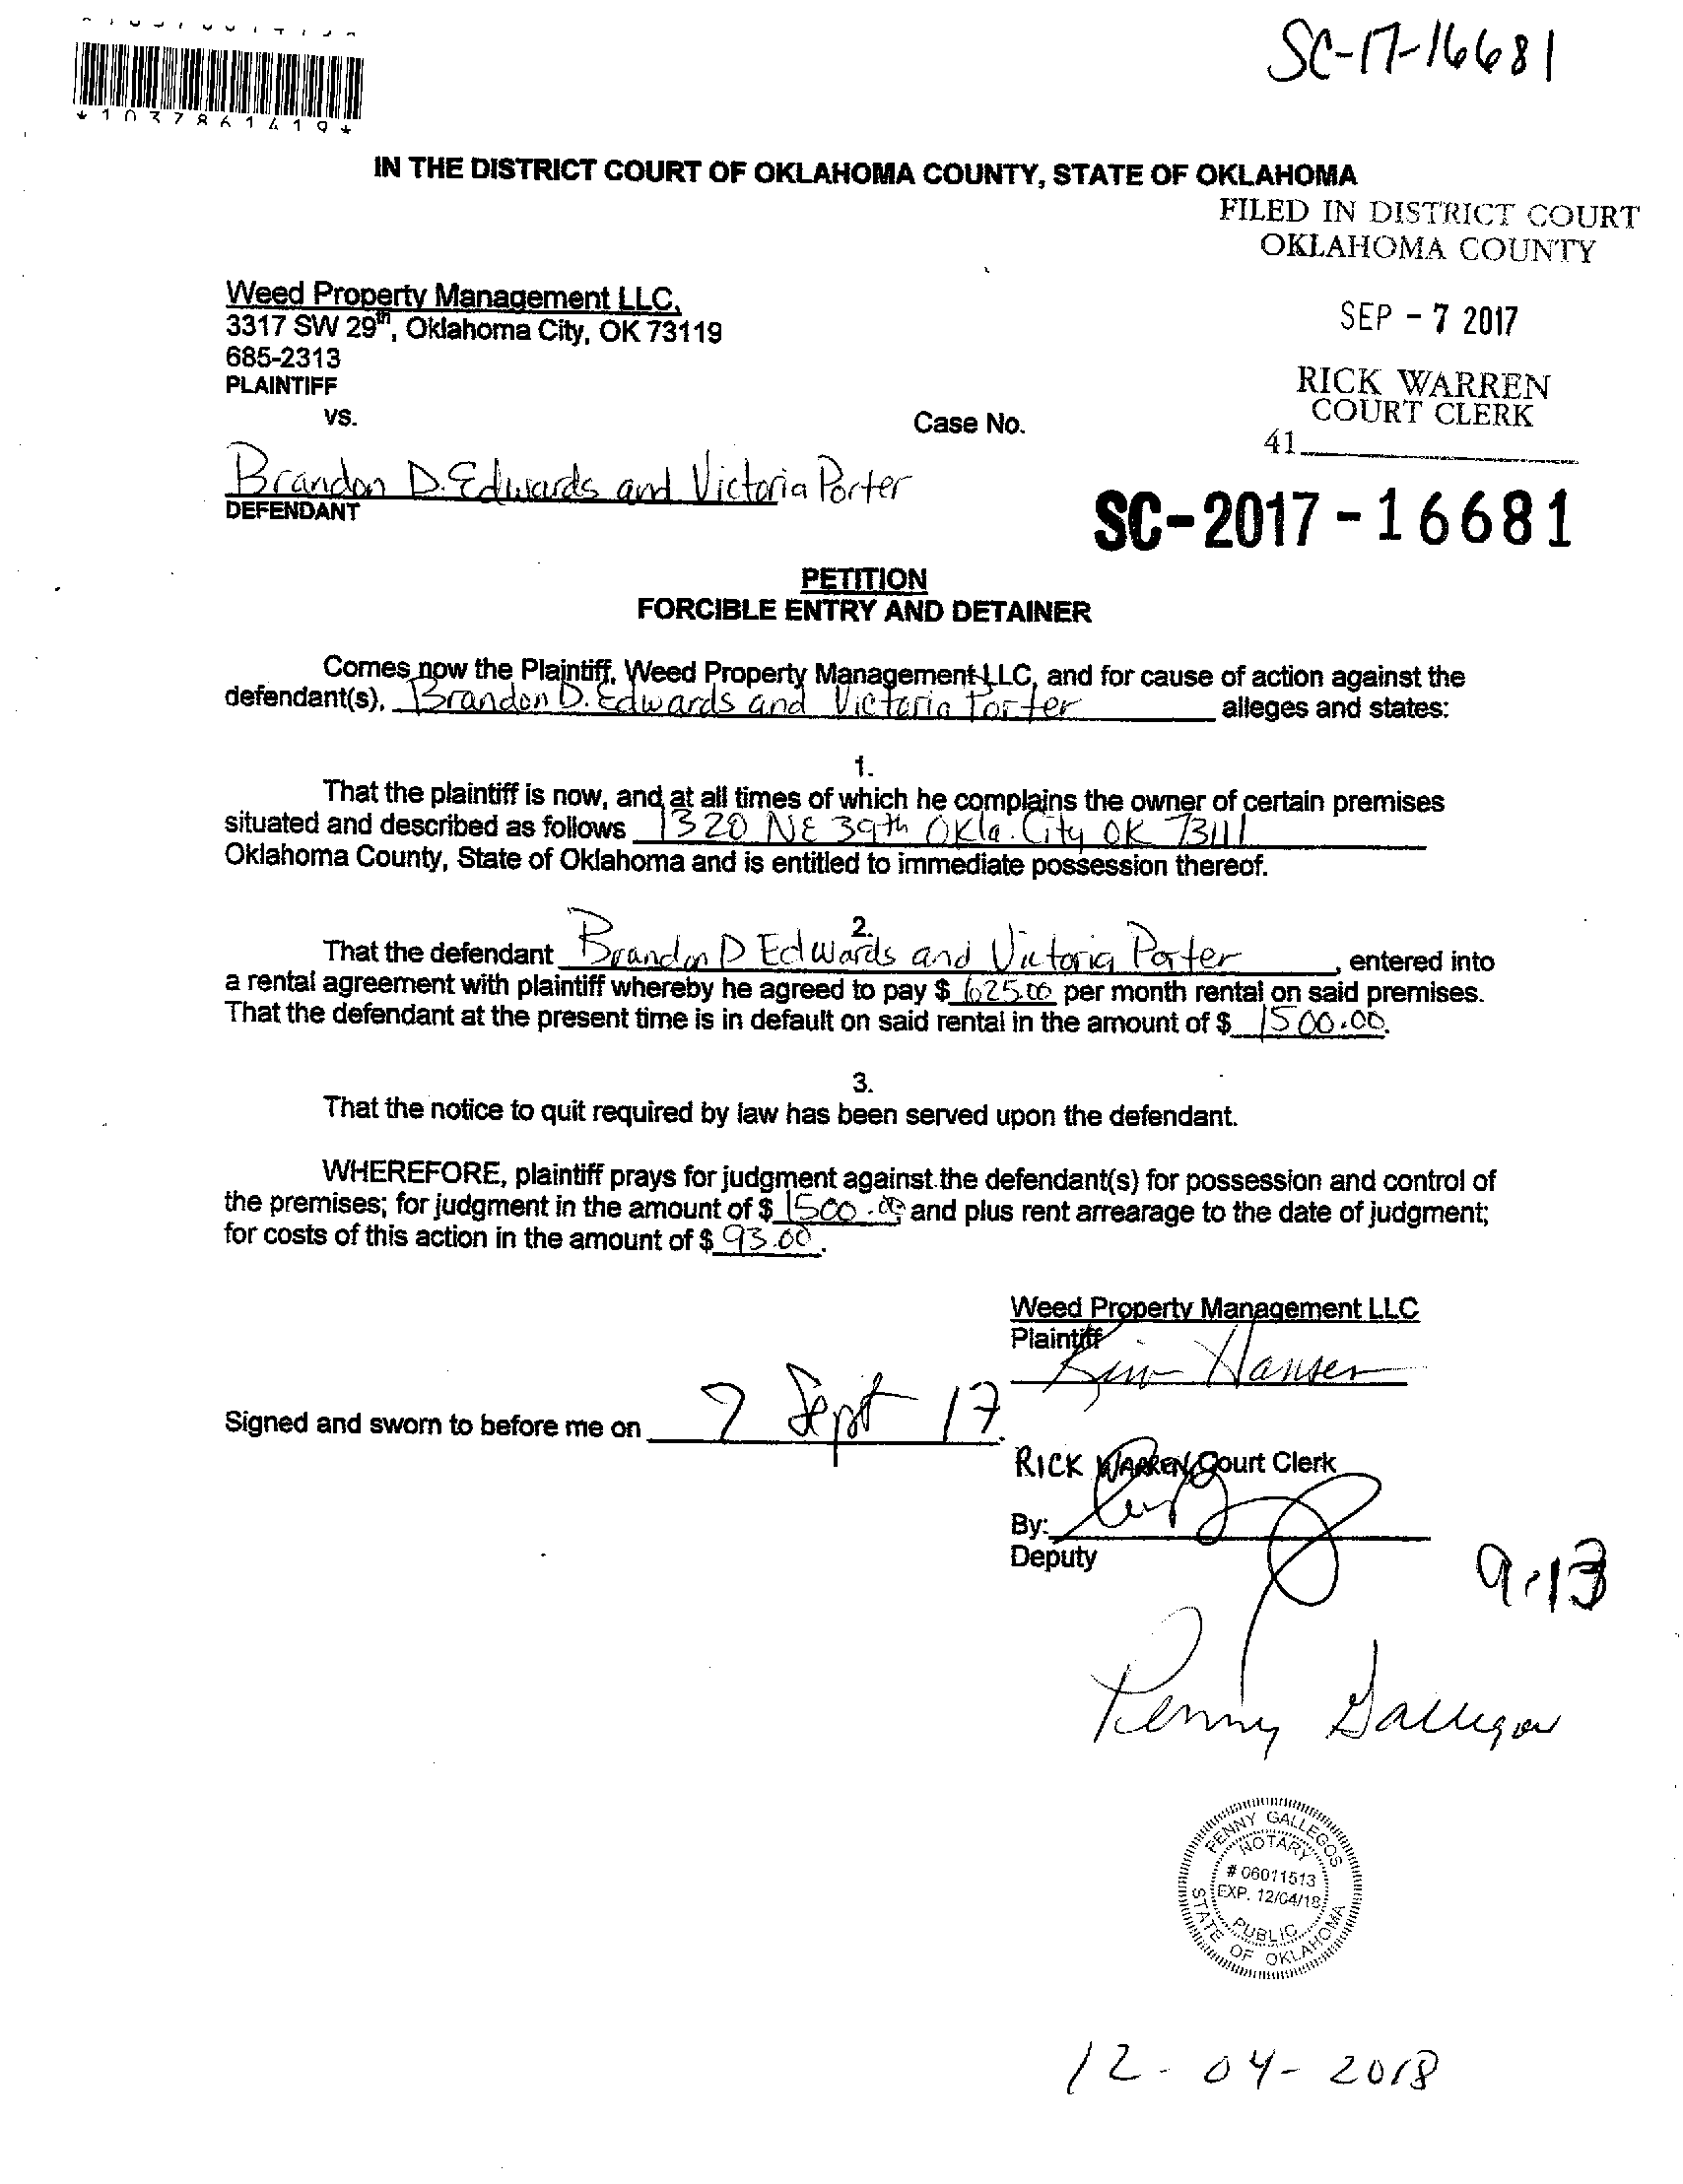 SC-17-16681
*1037861419*
IN THE DISTRICT COURT OF OKLAHOMA COUNTY, STATE OF OKLAHOMA
FILED IN DISTRICT COURT
OKLAHOMA COUNTY
Weed Property Management LLC,
3317 SW 29th, Oklahoma City, OK 73119
SEP - 7 2017
685-2313
PLAINTIFF
RICK WARREN
COURT CLERK
vs.
Case No.
41
Brandon D. Edwards and Victoria Porter
DEFENDANT
SC-2017-16681
PETITION
FORCIBLE ENTRY AND DETAINER
Comes now the Plaintiff, Weed Property Management LLC, and for cause of action against the
defendant(s), Brandon D. Edwards and Victoria Porter alleges and states:
1.
That the plaintiff is now, and at all times of which he complains the owner of certain premises
situated and described as follows 1320 NE 39th Okla. City OK 73111
Oklahoma County, State of Oklahoma and is entitled to immediate possession thereof.
2.
That the defendant Brandon D Edwards and Victoria Porter, entered into
a rental agreement with plaintiff whereby he agreed to pay $ 625.00 per month rental on said premises.
That the defendant at the present time is in default on said rental in the amount of $ 1500.00.
3.
That the notice to quit required by law has been served upon the defendant.
WHEREFORE, plaintiff prays for judgment against the defendant(s) for possession and control of
the premises; for judgment in the amount of $ 1500.00 and plus rent arrearage to the date of judgment;
for costs of this action in the amount of $ 93.00.
Weed Property Management LLC
Plaintiff
Kim Hansen
Signed and sworn to before me on 7 Sept 17.
RICK WARREN, Court Clerk
By:
Deputy
9-13
Penny Gallegos
PENNY GALLEGOS
NOTARY
# 06011513
EXP. 12/04/18
PUBLIC
STATE OF OKLAHOMA
12-04-2018